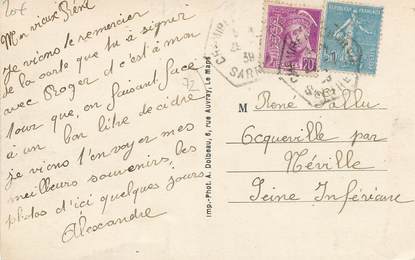 20€
Mon vieux René
je viens te remercier
de la carte que tu as signer
avec Roger et c'est à mon
tour que, en faisant face
à un bon litre de cidre
je viens t'envoyer mes
meilleurs souvenirs, les
photos d'ici quelques jours
Alexandre
72
Imp.-Phot. A. Dolbeau, 6, rue Auvray, Le Mans
POSTES
20
REPUBLIQUE FRANÇAISE
39
SARTHE
M René Vallu
Acqueville par
Néville
Seine Inférieure